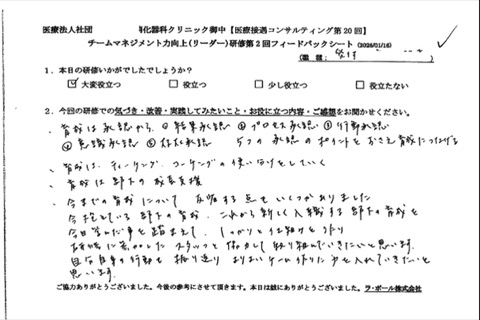 医療法人社団 消化器科クリニック御中【医療接遇コンサルティング第20回】
チームマネジメント力向上(リーダー)研修第2回フィードバックシート (2026/01/16)
(職種: 受付
1. 本日の研修いかがでしたでしょうか?
☑大変役立つ □役立つ □少し役立つ □役立たない
2. 今回の研修での気づき・改善・実践してみたいこと・お役に立つ内容・ご感想をお聞かせください。
・育成は承認から ①結果承認 ②プロセス承認 ③行動承認
④意識承認 ⑤存在承認 5つの承認のポイントをおさえ育成につなげる
・育成は、ティーチング、コーチングの使い分けをしていく
・育成は部下の成長支援
・今までの育成について 反省する点もいくつかありました
今指している部下の育成、これから新しく入職する部下の育成を
今日学んだ事を踏まえて、しっかりと仕組を作り
スタッフと協力して取り組んでいきたいと思います。
自分自身の行動も振り返り よりよいチーム作りに力を入れていきたいと
思います。
ご協力ありがとうございました。今後の参考にさせて頂きます。本日は誠にありがとうございました。ラ・ポール株式会社